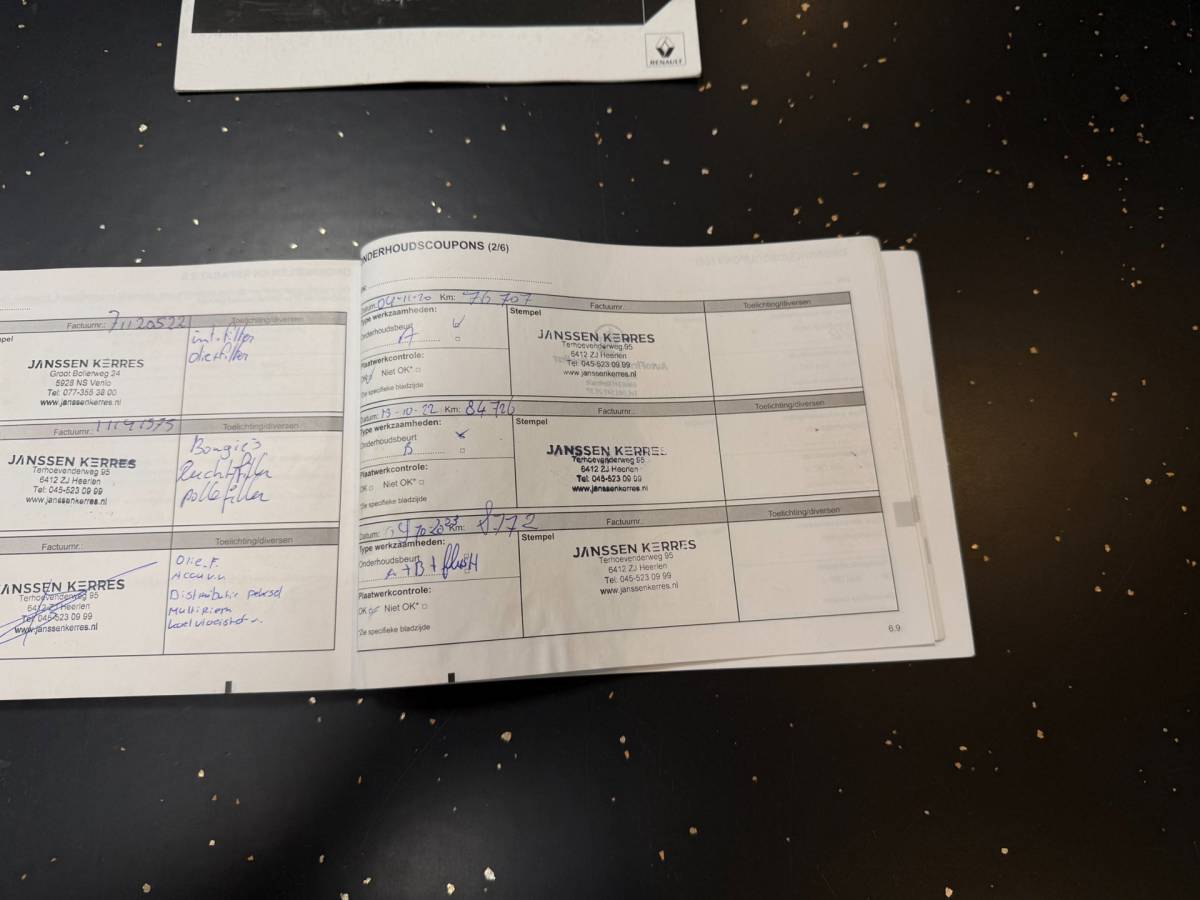 RENAULT
Factuurnr.: 71120522
Toelichting/diversen
int. filter
oliefilter
JANSSEN KERRES
Groot Bollerweg 24
5928 NS Venlo
Tel: 077-358 38 00
www.janssenkerres.nl
Factuurnr.: 11191575
Toelichting/diversen
Bougie's
Luchtfilter
pollefilter
JANSSEN KERRES
Terhoevenderweg 95
6412 ZJ Heerlen
Tel: 045-523 09 99
www.janssenkerres.nl
Factuurnr.:
Toelichting/diversen
Olie.F.
Accuuu
Distributie
Multiriem
Koelvloeistof
JANSSEN KERRES
Terhoevenderweg 95
6412 ZJ Heerlen
Tel: 045-523 09 99
www.janssenkerres.nl
ONDERHOUDSCOUPONS (2/6)
Datum: 04-11-20 Km: 76 707
Factuurnr.:
Toelichting/diversen
Type werkzaamheden:
Stempel
Onderhoudsbeurt
A
Plaatwerkcontrole:
OK Niet OK*
*Zie specifieke bladzijde
JANSSEN KERRES
Terhoevenderweg 95
6412 ZJ Heerlen
Tel: 045-523 09 99
www.janssenkerres.nl
Datum: 13-10-22 Km: 84 726
Factuurnr.:
Toelichting/diversen
Type werkzaamheden:
Stempel
Onderhoudsbeurt
B
Plaatwerkcontrole:
OK Niet OK*
*Zie specifieke bladzijde
JANSSEN KERRES
Terhoevenderweg 95
6412 ZJ Heerlen
Tel: 045-523 09 99
www.janssenkerres.nl
Datum: 04 10 2023 Km:
Factuurnr.:
Toelichting/diversen
Type werkzaamheden:
Stempel
Onderhoudsbeurt
A + B + flush
Plaatwerkcontrole:
OK Niet OK*
*Zie specifieke bladzijde
JANSSEN KERRES
Terhoevenderweg 95
6412 ZJ Heerlen
Tel: 045-523 09 99
www.janssenkerres.nl
6.9